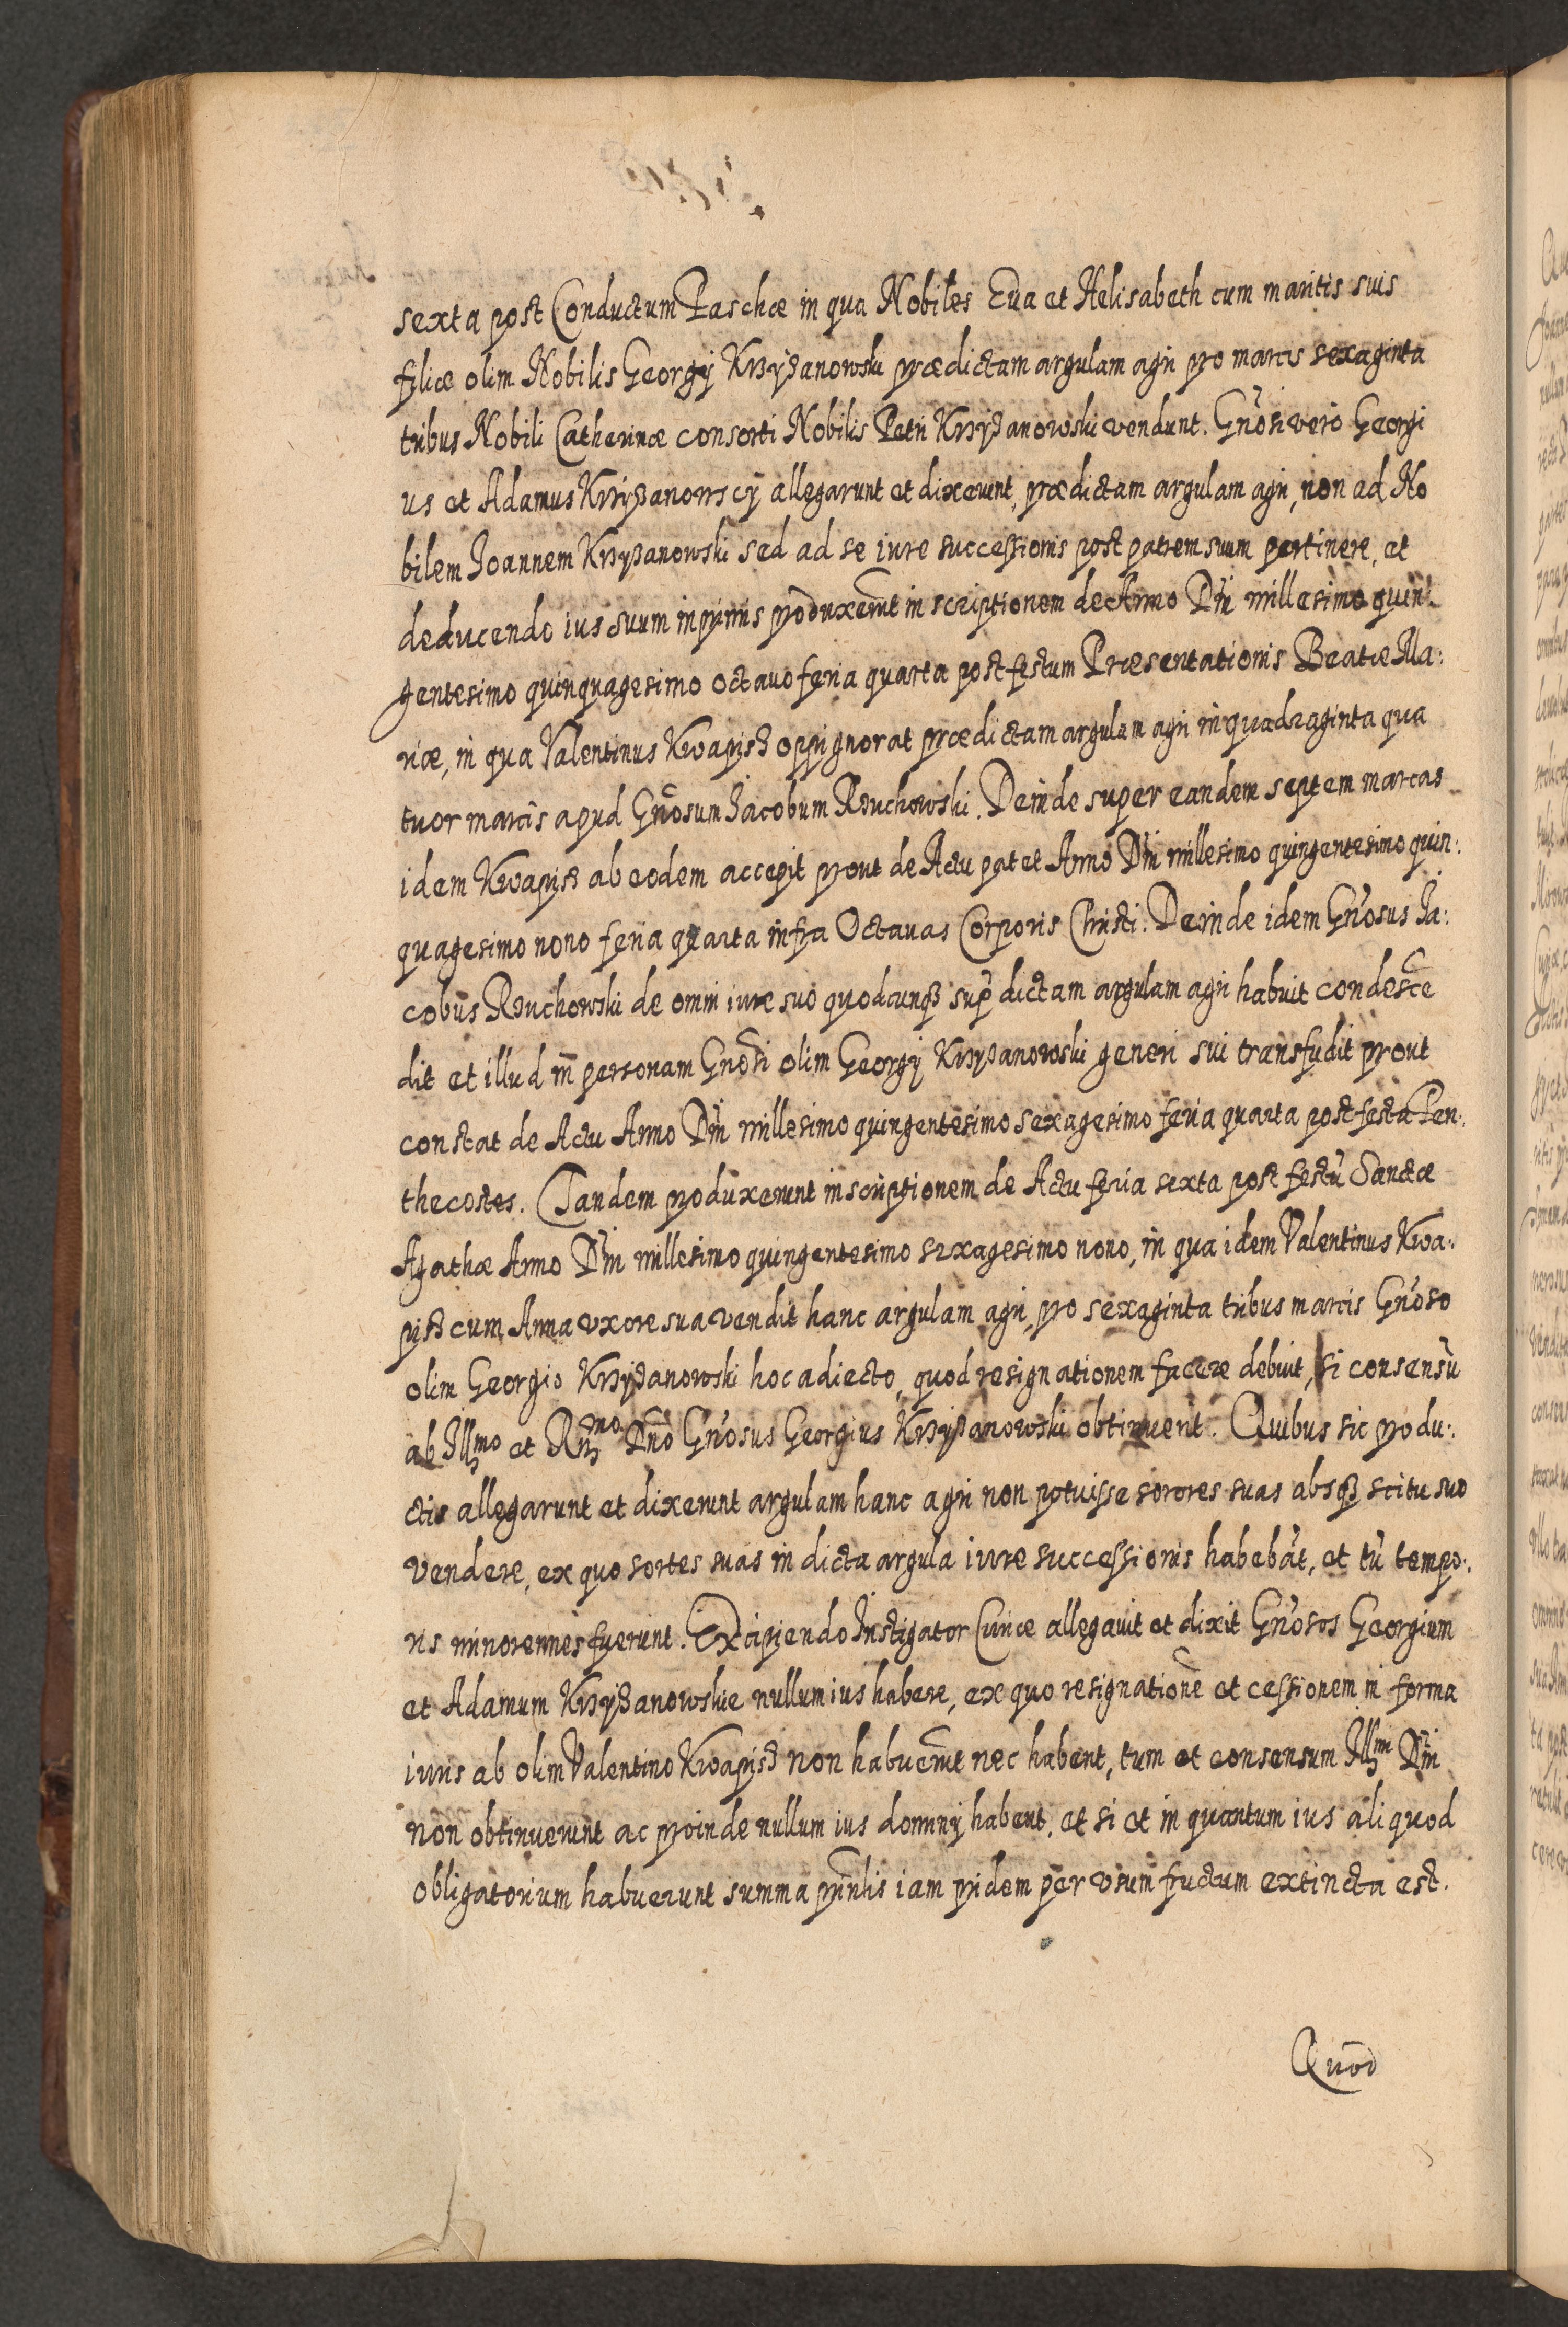 sexta post Conductum Paschæ in qua Nobiles Eua et Helisabeth cum maritis suis
filiæ olim Nobilis Georgij Krzyżanowski prædictam argulam agri pro marcis sexaginta
tribus Nobili Catherinæ consorti Nobilis Petri Krzyżanowski vendunt. Gñosi vero Georgi
us et Adamus Krzyżanowscÿ allegarunt et dixerunt, prædictam argulam agri, non ad No
bilem Joannem Krzyżanowski sed ad se iure successionis post patrem suum pertinere, et
deducendo ius suum inprimis produxerũt inscriptionem de Anno Dñi millesimo quin:
gentesimo quinquagesimo octauo feria quarta post festum Præsentationis Beatæ Ma:
riæ, in qua Valentinus Kwapisz oppignorat prædictam argulam agri in quadraginta qua
tuor marcis apud Gñosum Jacobum Rzuchowski. Deinde super eandem septem marcas
idem Kwapisz ab eodem accepit prout de Actu patet Anno Dñi millesimo quingentesimo quin:
quagesimo nono feria quarta infra Octauas Corporis Christi. Deinde idem Gñosus Ja:
cobus Rzuchowski de omni iure suo quodcunqȝ sup̃ dictam argulam agri habuit condesce
dit et illud in personam Gñosi olim Georgij Krzyżanowski generi sui transfudit prout
constat de Actu Anno Dñi millesimo quingentesimo sexagesimo feria quarta post festa Pen:
thecostes. Tandem produxerunt inscriptionem de Actu feria sexta post festũ Sanctæ
Agathæ Anno Dñi millesimo quingentesimo sexagesimo nono, in qua idem Valentinus Kwa:
pisz cum Anna vxore sua vendit hanc argulam agri, pro sexaginta tribus marcis Gñoso
olim Georgio Krzyżanowski hoc adiecto, quod resignationem facere debuit, si consensũ
ab Illmo et Rmo Dño Gñosus Georgius Krzyżanowski obtinuerit. Quibus sic produ:
ctis allegarunt et dixerunt argulam hanc agri non potuisse sorores suas absqȝ scitu suo
vendere, ex quo sortes suas in dicta argula iure successionis habebãt, et tũ tempo:
ris minorennes fuerunt. Excipiendo Instigator Curiæ allegauit et dixit Gñosos Georgium
et Adamum Krzyżanowskie nullum ius habere, ex quo resignationẽ et cessionem in forma
iuris ab olim Valentino Kwapisz non habuerũt nec habent, tum et consensum Illmi Dñi
non obtinuerunt ac proinde nullum ius dominij habent, et si et in quantum ius aliquod
obligatorium habuerunt summa prinˉlis iam pridem per vsum fructum extincta est.
Quod